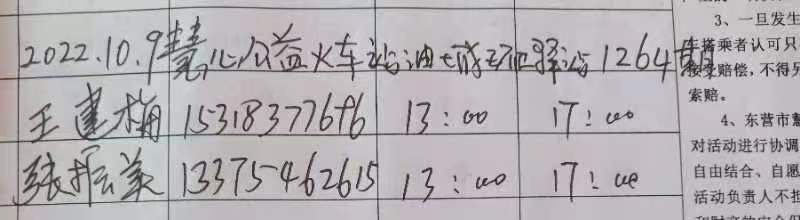 2022.10.9慧心公益火车站油城动脉驿站1264期
王建梅 15318377696 13:00 17:00
张振美 13375462615 13:00 17:00
3、一旦发生
车搭乘者认可只
接受赔偿,不得另
索赔。
4、东营市慧
对活动进行协调
自由结合、自愿
活动负责人不担